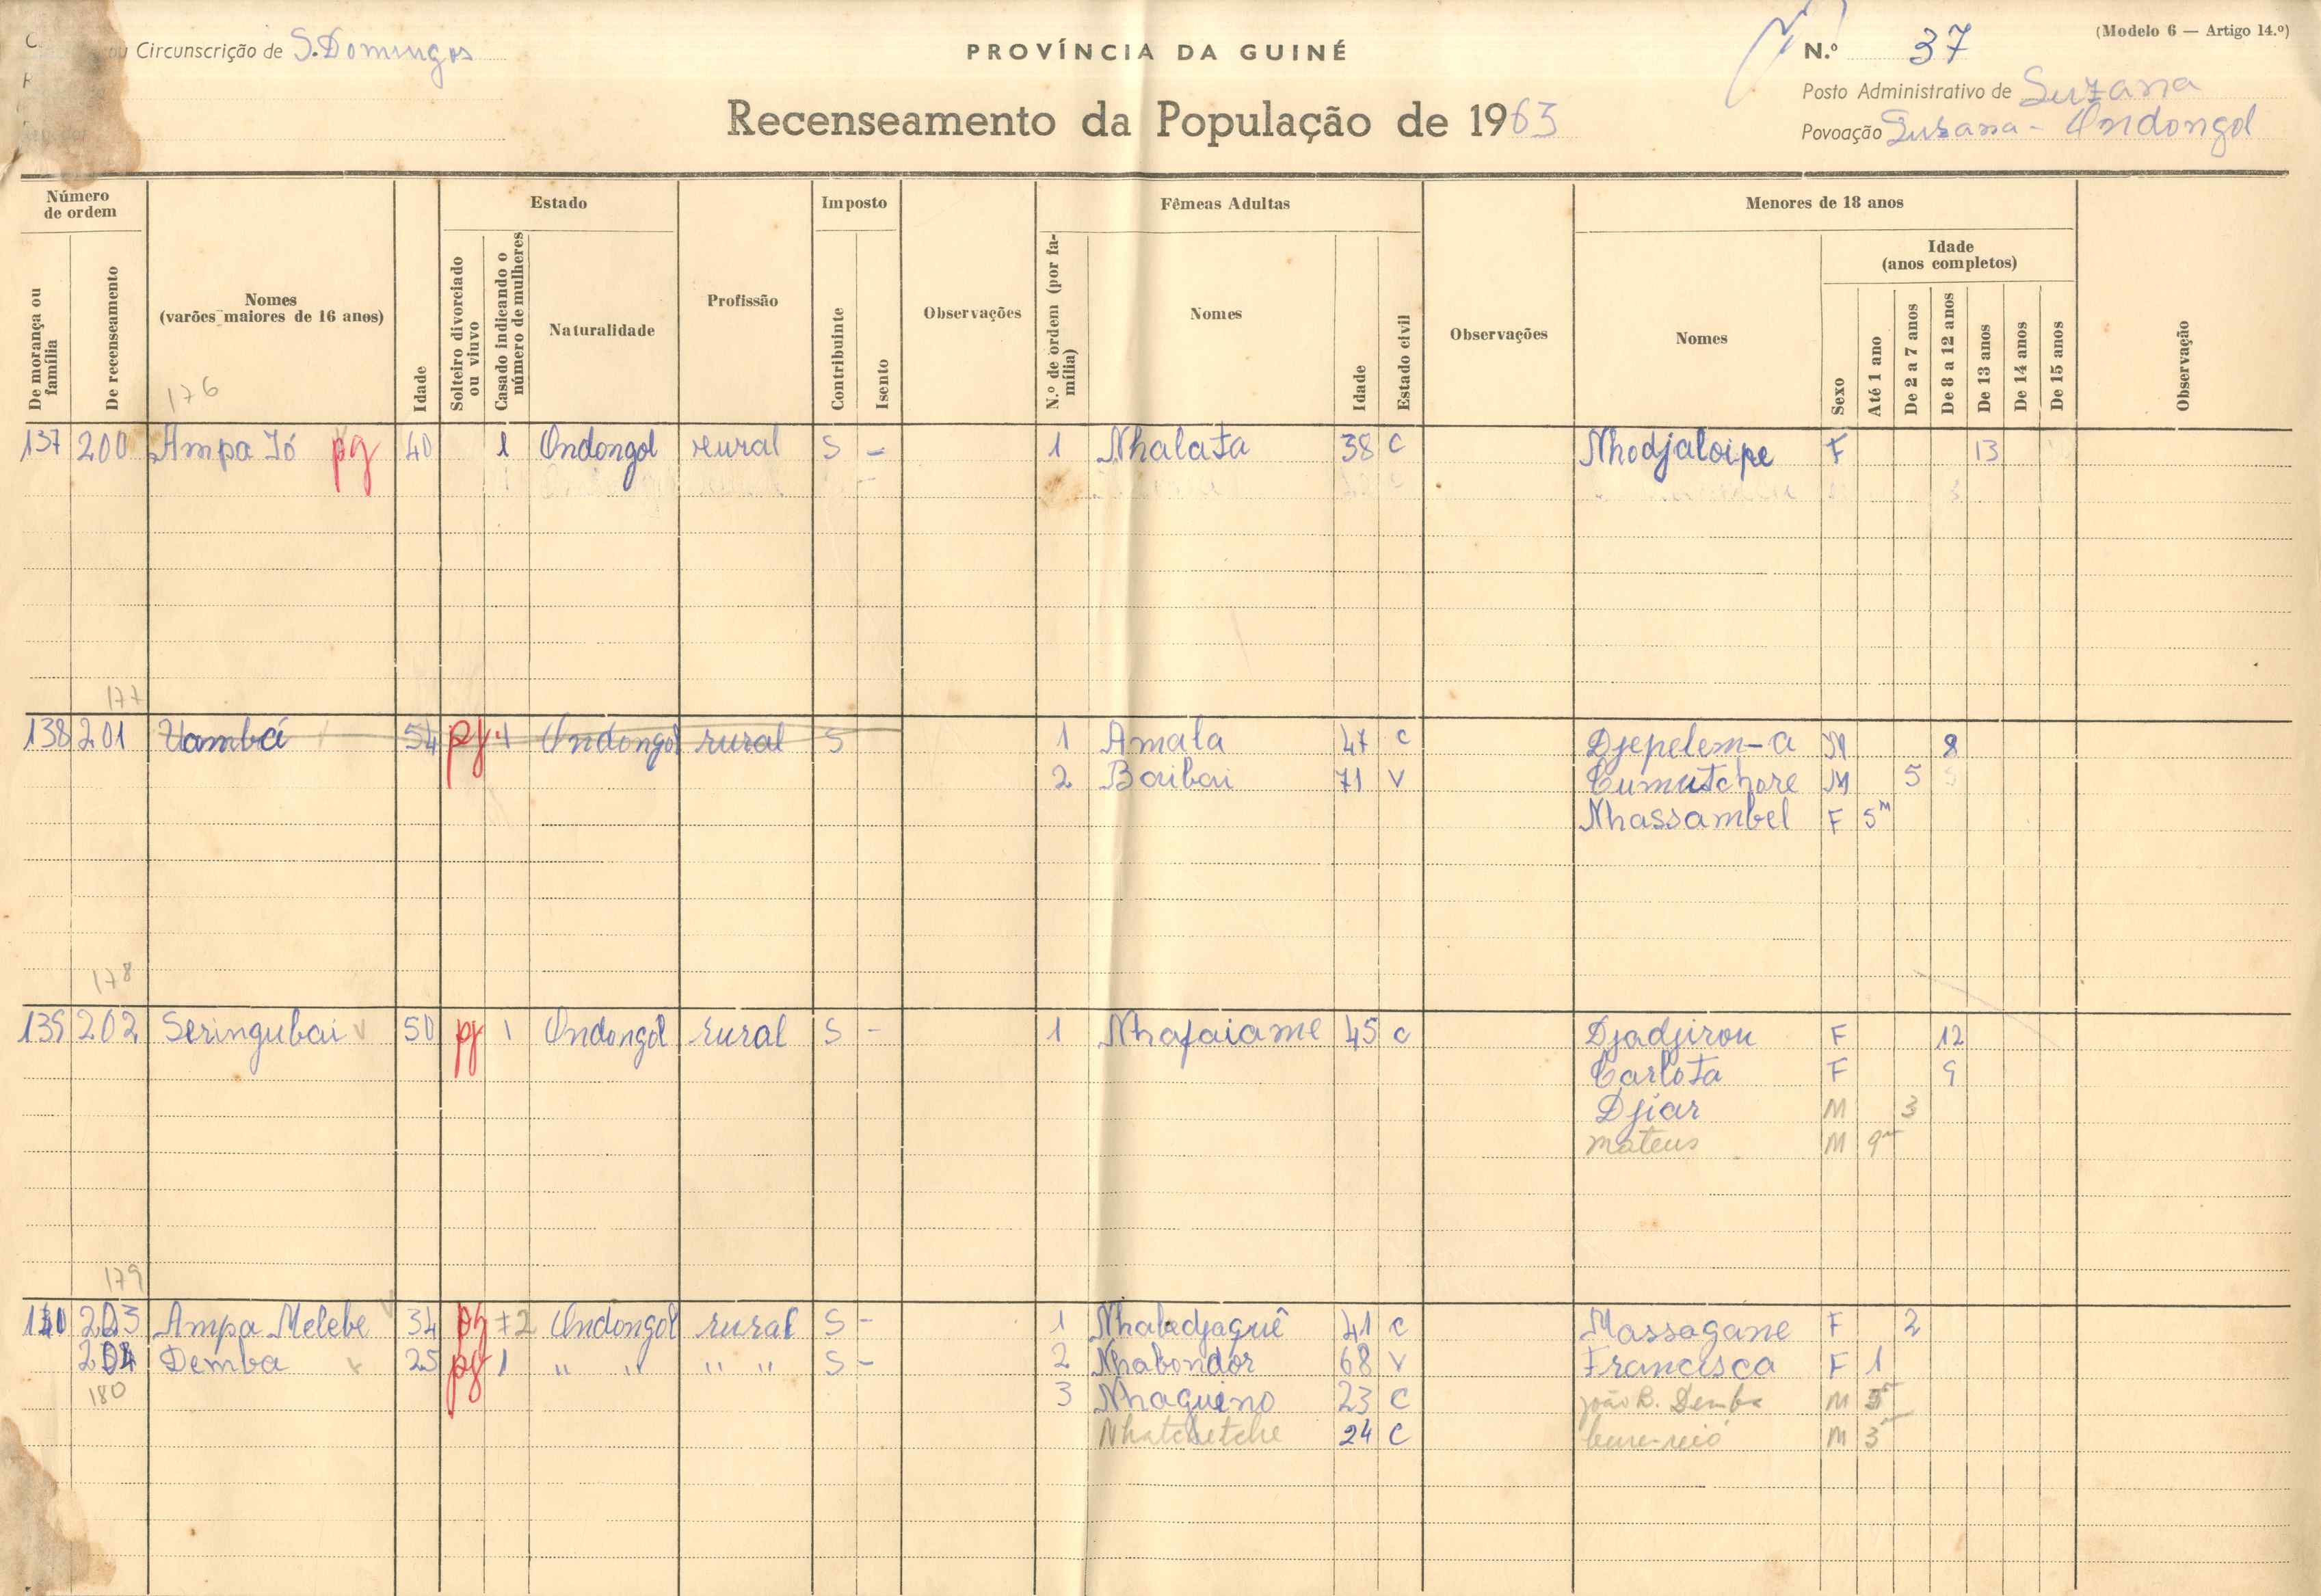 Circunscrição de S. Domingos
PROVÍNCIA DA GUINÉ
Recenseamento da População de 1963
(Modelo 6 — Artigo 14.º)
N.º 37
Posto Administrativo de Suzana
Povoação Suzana - Ondongol
Número de ordem
De morança ou família
De recenseamento
Nomes
(varões maiores de 16 anos)
Idade
Estado
Solteiro divorciado ou viuvo
Casado indicando o número de mulheres
Naturalidade
Profissão
Imposto
Contribuinte
Isento
Observações
Fêmeas Adultas
N.º de ordem (por família)
Nomes
Idade
Estado civil
Observações
Menores de 18 anos
Nomes
Sexo
Idade
(anos completos)
Até 1 ano
De 2 a 7 anos
De 8 a 12 anos
De 13 anos
De 14 anos
De 15 anos
Observação
176
137 200 Ampa Jó pg 40 1 Ondongol rural S - 1 Nhalata 38 C Nhodjaloipe F 13
177
138 201 Uambá 54 pg 1 Ondongol rural S 1 Amala 47 C Djepelem-a M 8
2 Baibai 71 V Cumutchore M 5
Nhassambel F 5M
178
139 202 Seringubai 50 pg 1 Ondongol rural S - 1 Nhafaiame 45 C Djadjirou F 12
Carlota F 9
Djiar M 3
mateus M 9m
179
140 203 Ampa Melebe 34 pg 2 Ondongol rural S - 1 Nhabedjaquê 41 C Massagane F 2
204 Demba 25 pg 1 " " " " S - 2 Nhabondor 68 V Francisca F 1
180 3 Nhaqueno 23 C joão B. Demba M
Nhatchetche 24 C M 3m